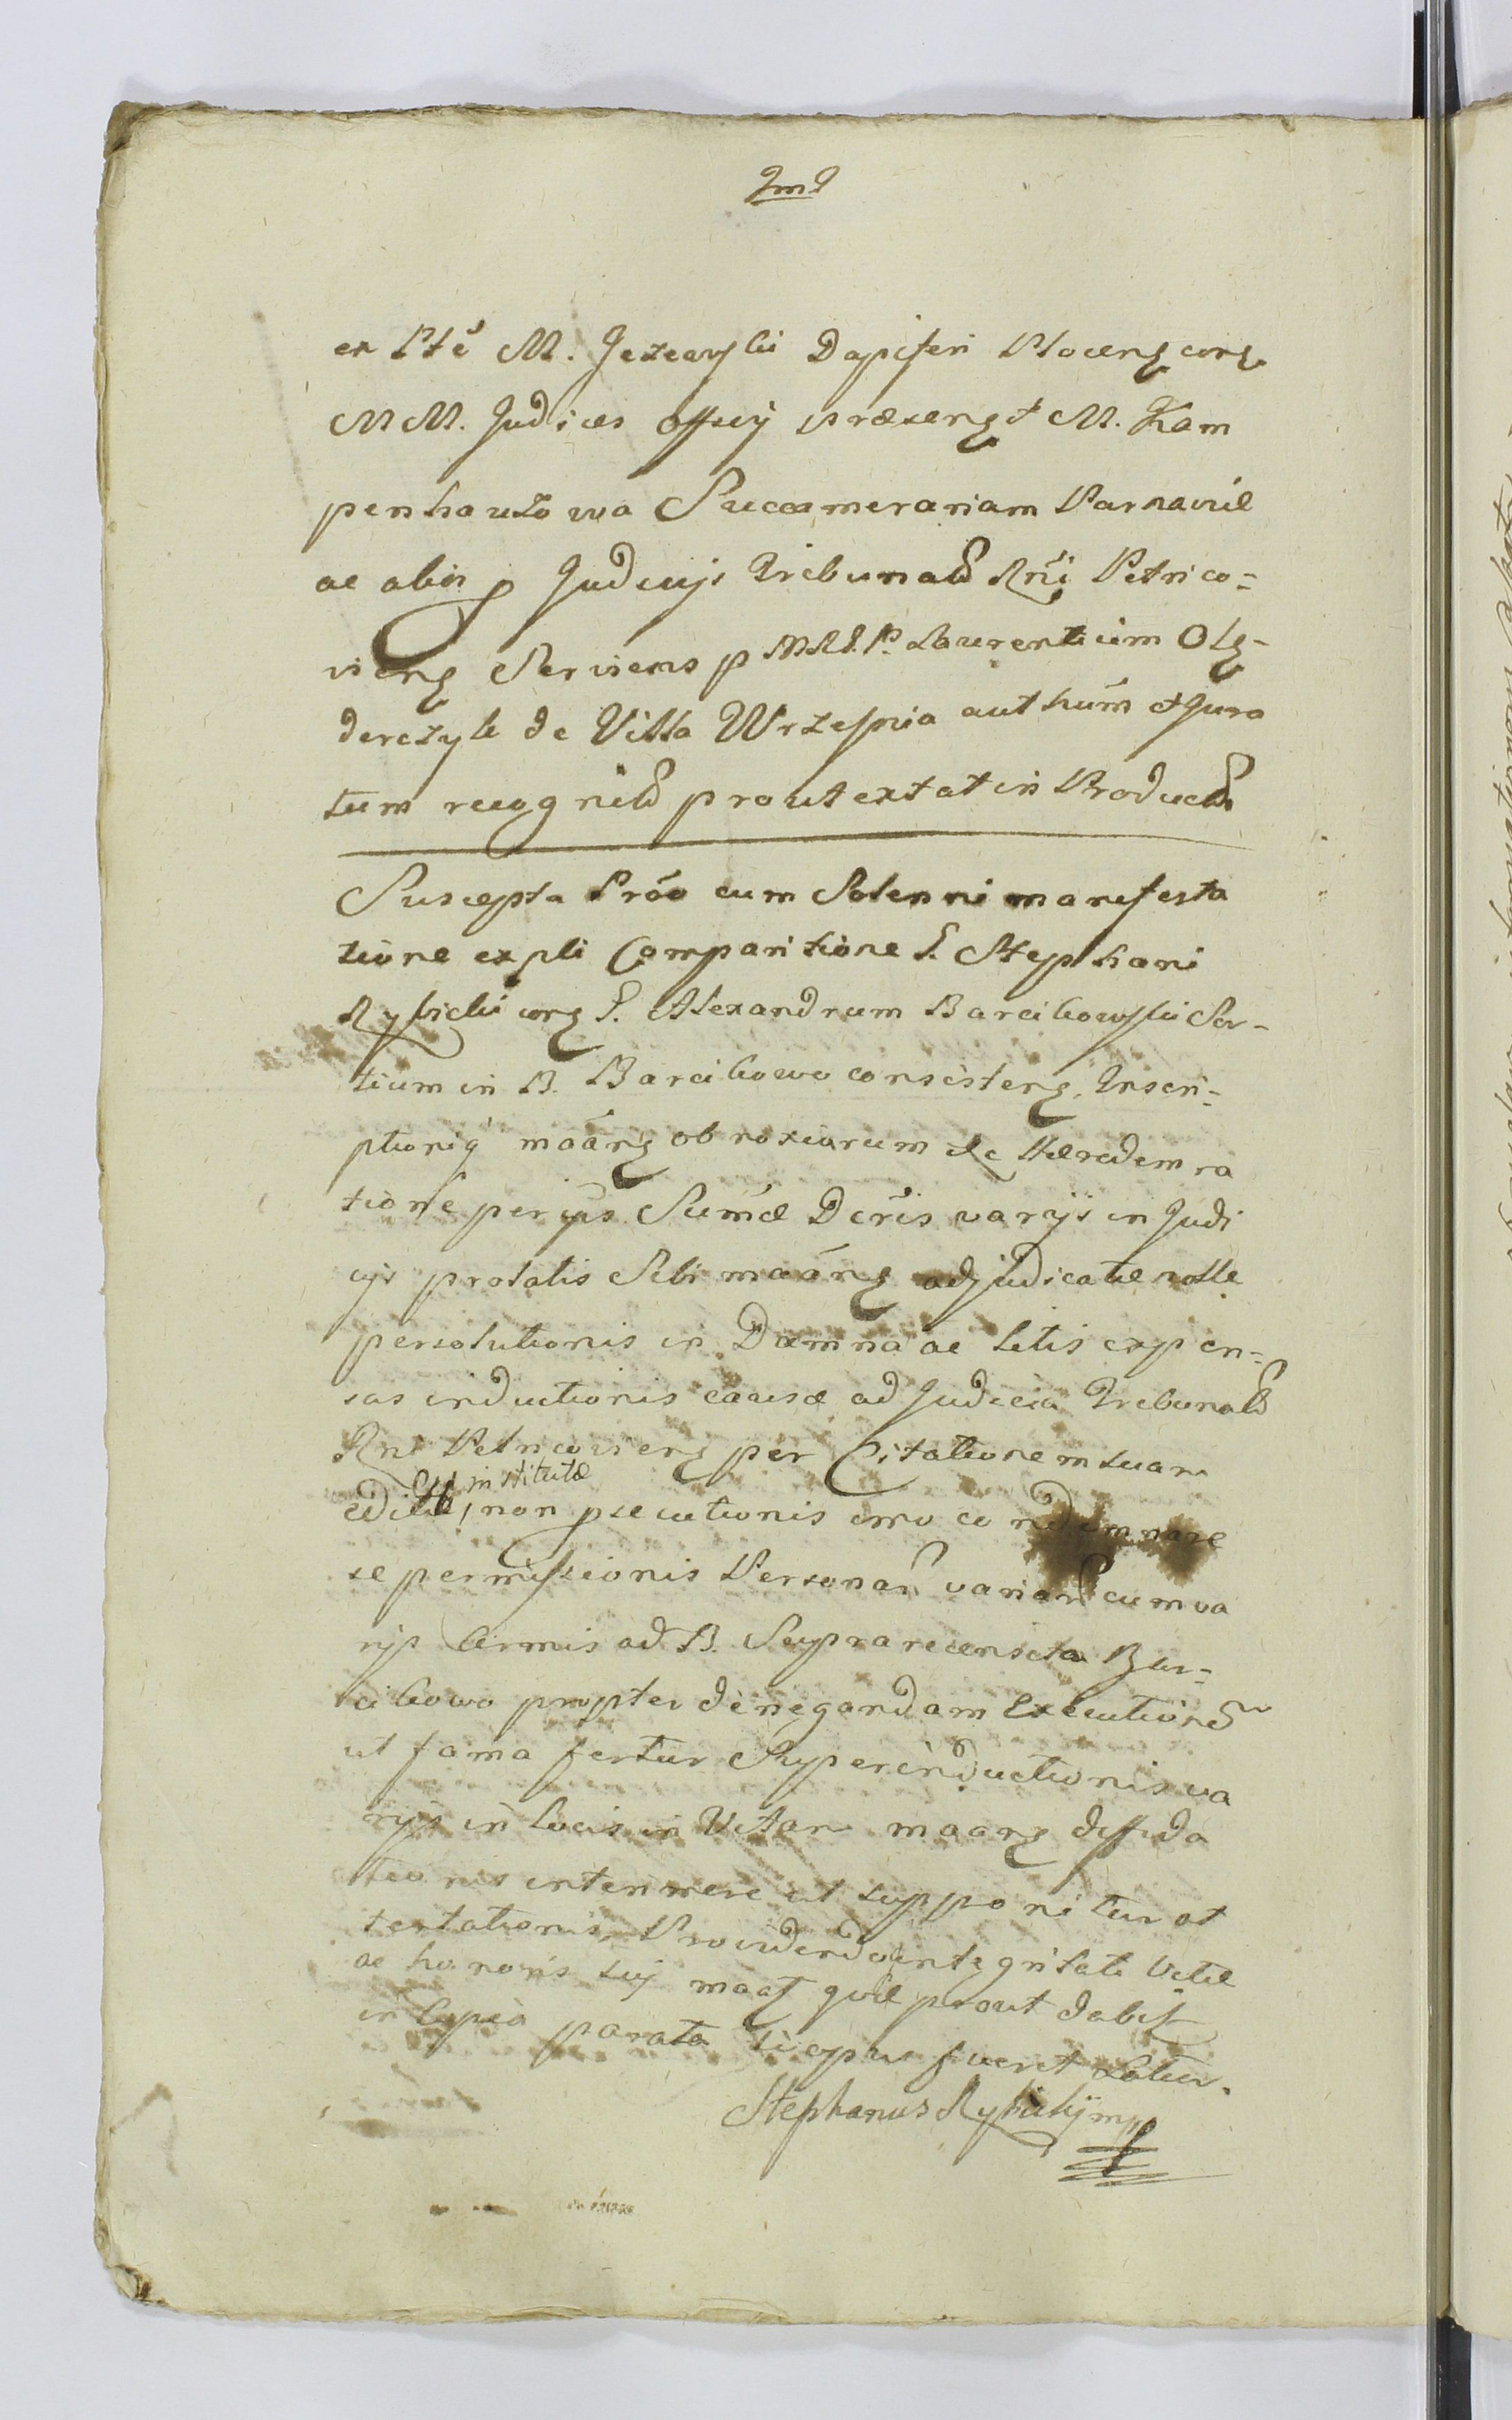 ex Ptè M. Jezewski Dapiferi Plocens̨ cons̨
MM. Judices Offcij præsens̨ t M. Kam
penhauzowa Succamerariam Parnavie
ac aliós p Judicijs Tribunał Rni Petrico=
viens̨ Serviens p MRS. P. Laurentium Olę-
derczyk de Villa Wrzepia authúm et Jura
tum recogniť prout extat in Produciś
Suscepta Próo cum Solenni manifesta
tione expli Comparitione S. Stephani
Rybicki cons̨ S. Alexandrum Barcikowski Sor-
tium in B. Barcikowo consistens̨, Inscri=
ptioniq́ maáns̨ obnoxiarum &c Hæredem ra
tione per ejus Sum̃æ Decr̃is varijs in Judi
cijs prolatis Sibi maáns̨ adjudicatæ nolle
persolutionis in Damna ac litis expen=
sas inductionis causæ ad Judicia Tribunał
Rni Petricoviens̨ per Citationem suam
institutæ
editæ, non psecutionis imo condemnare
se permissionis Personar̃ variar̃ cum va
rijs Armis ad B. Suprarecenseta Bar=
cikowo propter denegandam Executionẽ
ut fama fertur Superinductionis va
rijs in locis in Vitam maans̨ diffida
tionis interimere ut supponitur at
testationis, Providendo integritati Vitæ
ac honoris sui maaṡ quæ prout dabit
in Copia parata si opus fuerit Latius.
Stephanus Rybickij mp